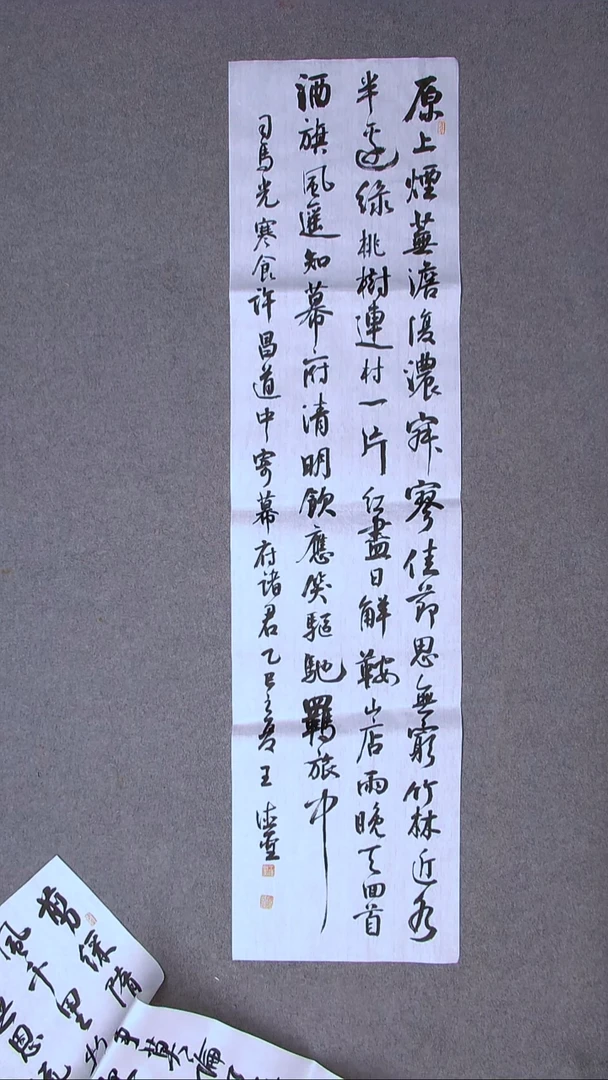 原上煙蕪澹復濃寂寥佳節思無窮竹林近水
半邊綠桃樹連村一片紅盡日解鞍山店雨晚天回首
酒旗風遙知幕府清明飲應笑驅馳羈旅中
司馬光寒食許昌道中寄幕府諸君乙巳之春王
剪綵隋
風千里